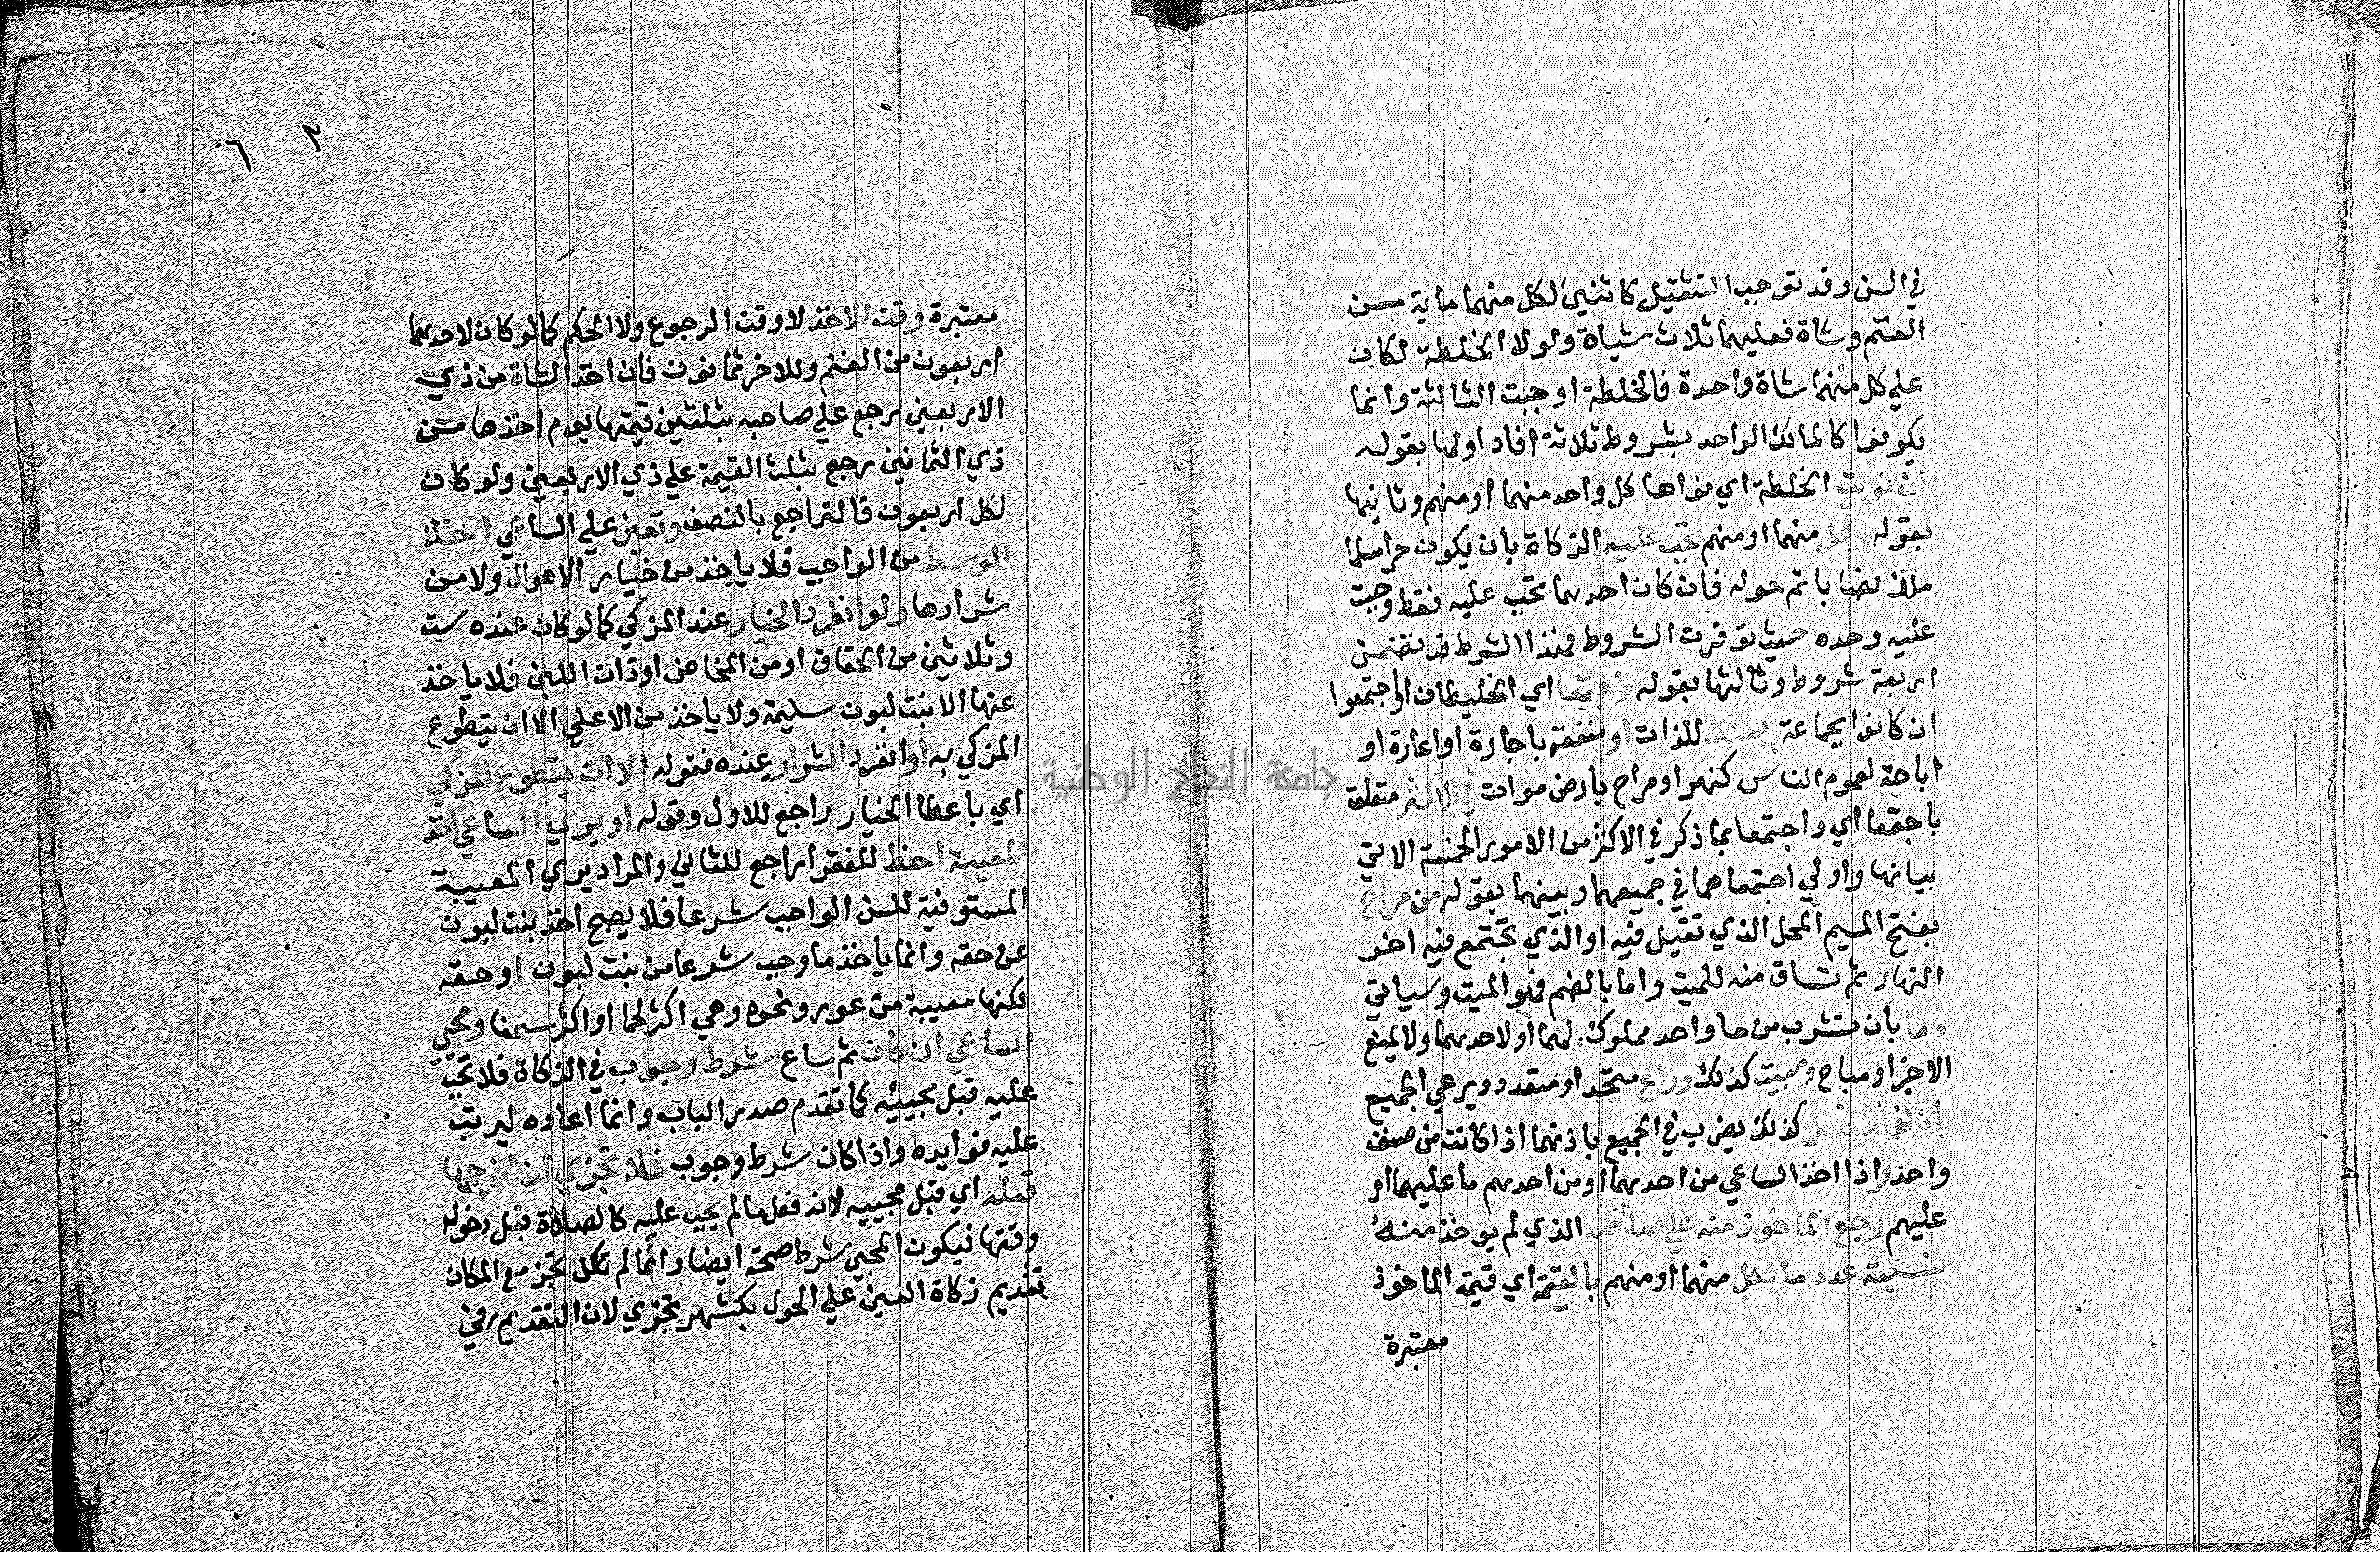 في السن وقد توجب التثقيل كاثنين لكل منهما ماية من
الغنم وشاة فعليهما ثلاث شياة ولولا الخلطة لكان
علي كل منهما شاة واحدة فالخلطة اوجبت الثالثة وانما
يكونوا كالمالك الواحد بشروط ثلاثة افاد اولها بقوله
ان نويت الخلطة اي نواها كل واحد منهما او منهم وثانيها
بقوله وكل منهما او منهم تجب عليه الزكاة بان يكون حرا مسلما
ملك نصابا تم حوله فان كان احدهما تجب عليه فقط وجبت
عليه وحده حيث توفرت الشروط فهذا الشرط قد تضمن
اربعة شروط وثالثها بقوله واجتمعا اي الخليطان او اجتمعوا
ان كانوا جماعة بملك للذات او منفعة باجارة او اعارة او
اباحة لعموم الناس كنهر او مراح بارض موات في الاكثر متعلق
باجتمعا اي واجتمعا بما ذكر في الاكثر من الامور الخمسة الاتي
بيانها واولي اجتماهما في جميعها وبينها بقوله من مراح
بفتح الميم المحل الذي تقيل فيه او الذي تجتمع فيه اخر
النهار ثم تساق منه للمبيت واما بالضم فهو المبيت وسياتي
وما بان تشرب من ما واحد مملوك لهما او لاحدهما ولا يمنع
الاخر او مباح ومبيت كذلك وراع متحد او متعدد ويرعي الجميع
باذنهما وفحل كذلك يضرب في الجميع باذنهما اذا كانت من صنف
واحد واذا اخذ الساعي من احدهما او من احدهم ما عليهما او
عليهم رجع الماخوذ منه علي صاحبه الذي لم يوخذ منه
بنسبة عدد ما لكل منهما او منهم بالقيمة اي قيمة الماخوذ
معتبرة
٣ ٦
معتبرة وقت الاخذ لا وقت الرجوع ولا الحكم كما لو كان لاحدهما
اربعون من الغنم وللاخر ثمانون فان اخذ الشاة من ذي
الاربعين رجع علي صاحبه بثلثين قيمتها يوم اخذها من
ذي الثمانين رجع بثلث القيمة علي ذي الاربعين ولو كان
لكل اربعون فالتراجع بالنصف وتعين علي الساعي اخذ
الوسط من الواجب فلا ياخذ من خيار الاموال ولا من
شرارها ولو انفرد الخيار عند المزكي كما لو كان عنده ست
وثلاثين من الحقاق او من المخاض او ذات اللبن فلا ياخذ
عنها الا بنت لبون سليمة ولا ياخذ من الاعلي الا ان يتطوع
المزكي به او انفرد الشرار عنده فقوله الا ان يتطوع المزكي
اي باعطا الخيار راجع للاول وقوله او يري الساعي اخذ
المعيبة احظ للفقرا راجع للثاني والمراد يري المعيبة
المستوفية للسن الواجب شرعا فلا يصح اخذ بنت لبون
عن حقه وانما ياخذ ما وجب شرعا من بنت لبون او حقه
لكنها معيبة من عور ونحوه وهي اكثر لحما او اكثر سمنا ومجي
الساعي ان كان ثم ساع شرط وجوب في الزكاة فلا تجب
عليه قبل مجيئه كما تقدم صدر الباب وانما اعاده ليرتب
عليه فوايده واذا كان شرط وجوب فلا تجزي ان اخرجها
قبله اي قبل مجييه لانه فعل ما لم يجب عليه كالصلاة قبل دخول
وقتها فيكون المجي شرط صحة ايضا وانما لم تكن تجز مع المكان
تقديم زكاة العين علي الحول بكشهر تجزي لان التقديم في
جامعة النجاح الوطنية